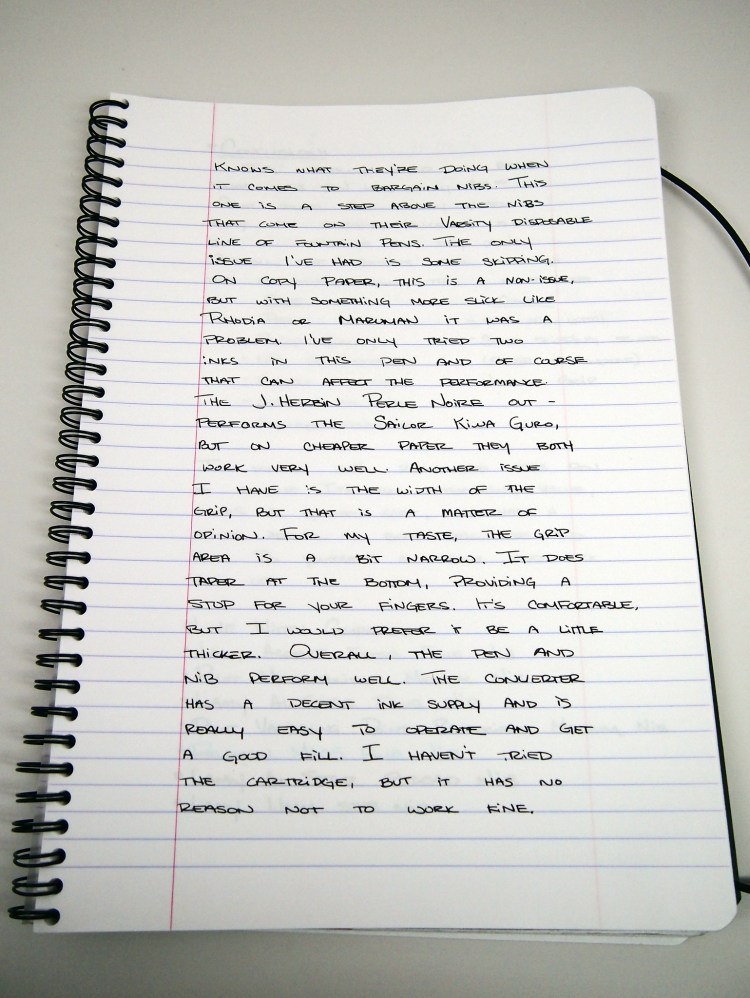 KNOWS WHAT THEY'RE DOING WHEN
IT COMES TO BARGAIN NIBS. THIS
ONE IS A STEP ABOVE THE NIBS
THAT COME ON THEIR VARSITY DISPOSABLE
LINE OF FOUNTAIN PENS. THE ONLY
ISSUE I'VE HAD IS SOME SKIPPING.
ON COPY PAPER, THIS IS A NON-ISSUE,
BUT WITH SOMETHING MORE SLICK LIKE
RHODIA OR MARUMAN IT WAS A
PROBLEM. I'VE ONLY TRIED TWO
INKS IN THIS PEN AND OF COURSE
THAT CAN AFFECT THE PERFORMANCE.
THE J. HERBIN PERLE NOIRE OUT-
PERFORMS THE SAILOR KIWA GURO,
BUT ON CHEAPER PAPER THEY BOTH
WORK VERY WELL. ANOTHER ISSUE
I HAVE IS THE WIDTH OF THE
GRIP, BUT THAT IS A MATTER OF
OPINION. FOR MY TASTE, THE GRIP
AREA IS A BIT NARROW. IT DOES
TAPER AT THE BOTTOM, PROVIDING A
STOP FOR YOUR FINGERS. IT'S COMFORTABLE,
BUT I WOULD PREFER IT BE A LITTLE
THICKER. OVERALL, THE PEN AND
NIB PERFORM WELL. THE CONVERTER
HAS A DECENT INK SUPPLY AND IS
REALLY EASY TO OPERATE AND GET
A GOOD FILL. I HAVEN'T TRIED
THE CARTRIDGE, BUT IT HAS NO
REASON NOT TO WORK FINE.